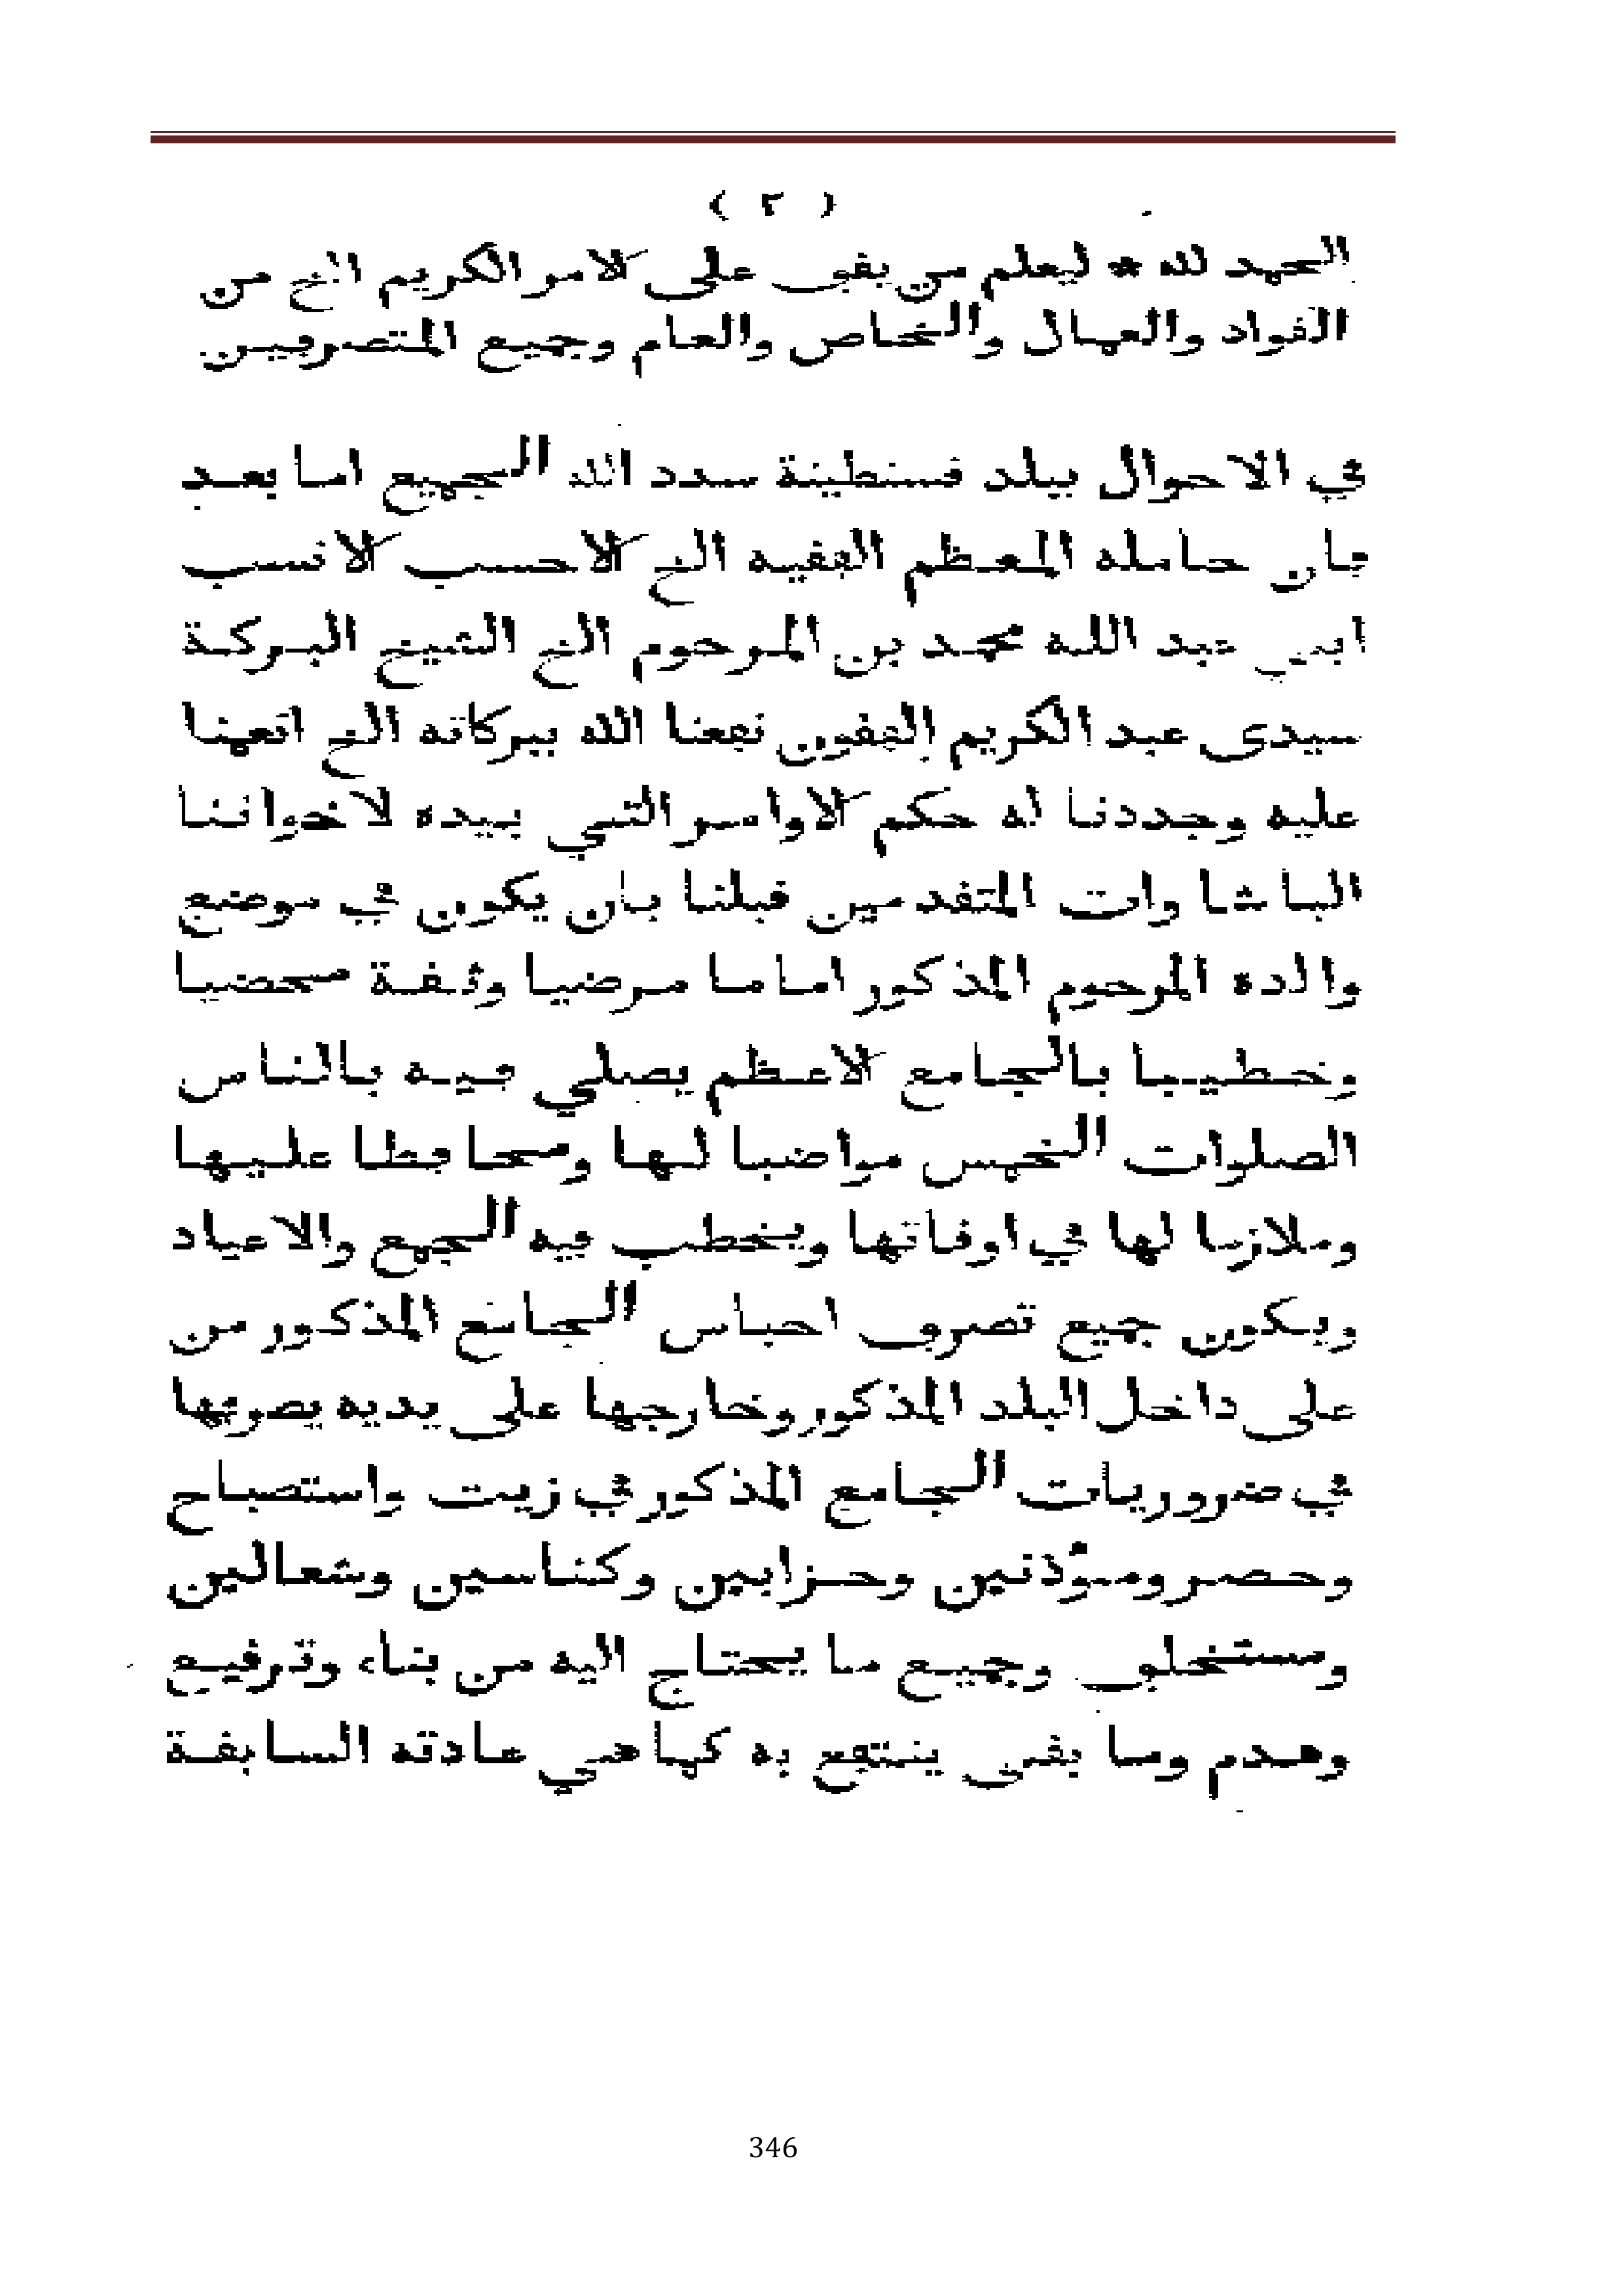 ( ٢ )
الحمد لله * ليعلم من يقف على الامر الكريم الخ من
القواد والعمال والخاص والعام وجميع المتصرفين
في الاحوال ببلد قسنطينة سدد الله الجميع اما بعد
فان حامله المعظم الفقيه الخ الاحسب الانسب
ابي عبد الله محمد بن المرحوم الخ الشيخ البركة
سيدى عبد الكريم الفقون نفعنا الله ببركاته الخ انعمنا
عليه وجددنا له حكم الاوامر التي بيده لاخواننا
الباشاوات المتقدمين قبلنا بان يكون في موضع
والده المرحوم المذكور اماما مرضيا وثقة محضيا
وخطيبا بالجامع الاعظم يصلي فيه بالناس
الصلوات الخمس مواضبا لها ومحافظا عليها
وملازما لها في اوقاتها ويخطب فيه الجمع والاعياد
ويكون جميع تصرف احباس الجامع المذكور من
على داخل البلد المذكور وخارجها على يديه يصرفها
في ضروريات الجامع المذكور في زيت واستصباح
وحصر ومؤذنين وحزابين وكناسين وشعالين
ومستخلف وجميع ما يحتاج اليه من بناء وترفيع
وهدم وما بقى ينتفع به كما هي عادته السابقة
346